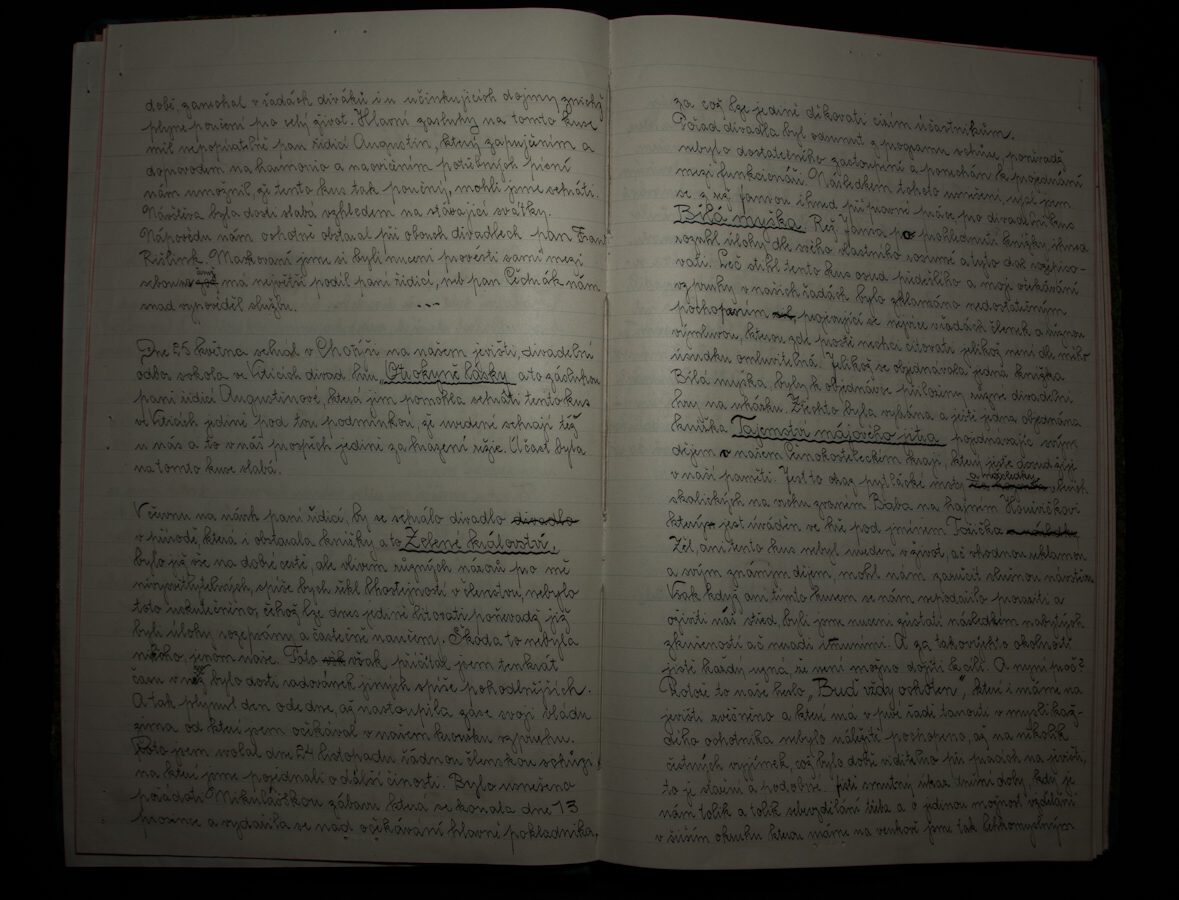 době, zanechal v řadách diváků i u učinkujicich dojmy z nichž
plyne poučení pro celý život. Hlavní zásluhy na tomto kuse
měl nepopiratelně pan řídící Augustin, který zapujčením a
doprovodem na harmonio a nacvičením potřebných písní
nám umožnil, že tento kus tak poučný, mohli jsme sehráti.
Návštěva byla dosti slabá vzhledem na stávající svátky.
Nápovědu nám ochotně obstaral při obouch divadlech pan Frant
Rišlink. Maskovaní jsme si byli nuceni provésti sami mezi
sebou má největší podíl paní řídící, neb pan Čichák nám
snad vypověděl službu.
Dne 25 května sehrál v Choříři na našem jevišti, divadelní
odbor sokola ve Vticích divad. hru Otrokyně lásky a to zásluhou
paní řídící Augustinové, která jim pomohla sehráti tento kus
ve Vticích jedině pod tou podmínkou, že uvedení sehrají též
u nás a to v náš prospěch jedině za hrazení režie. Účast byla
na tomto kuse slabá.
V červnu na návrh paní řídící, by se sehrálo divadlo divadlo
v přírodě, která i obstarala knížky a to Zelené království,
bylo již vše na dobré cestě, ale vlivem různých názorů pro mě
nevysvětlitelných, spíše bych řekl lhostejností v členstvu, nebylo
toto uskutečněno, čehož lze dnes jedině litovati poněvadž již
byli úlohy rozepsány a částečně naučeny. Škoda to nebyla
nikoho, jenom naše. Toto však přičítal jsem tenkrát
času v němž bylo dosti radovánek jiných spíše pohodlnějších.
A tak plynul den ode dne, až nastoupila zase svoji vládu
zima od které jsem očekával v našem kroužku vzpruhu.
Proto jsem svolal dne 24 listopadu řádnou členskou schůzi,
na které jsme pojednali o další činosti. Bylo usnešeno
pořádati Mikulášskou zábavu která se konala dne 13
prosince a vydařila se nad očekávání hlavní pokladníka,
za což lze jedině děkovati cizím účastníkům.
Pořad divadla byl odsunut z programu schůze, poněvadž
nebylo dostatečného zastoupení a ponechán k projednání
mezi funkcionáři. Následkem tohoto usnešení, ujal jsem
se z rež Janrou ihned přípravné práce pro divadelní kus
Bílá myška. Rež Janra po prohlednutí knížky, ihned
rozvrhl úlohy dle svého vlastního rozumu a bylo dne rozpiso-
vati. Leč stihl tento kus osud předešlého a moje očekávání
vzpruhy v našich řadách bylo zklamáno nedostatečným
pochopením projevující se nejvíce v řadách členek a různou
výmluvou, kterou zde prostě nechci citovati jelikož není dle mého
úsudku omluvitelná. Jelikož se objednávala jedna knížka
Bílá myška, byly k objednávce přiloženy různé divadelní
hry na ukázku. Z těchto byla vybrána a ještě jedna objednána
knížka Tajemství májového jitra pojednávající svým
dějem v našem Černokosteleckém kraji, který ještě dosud žije
v naší paměti. Jest to obraz pytlácké msty a následky
skalických na vrchu zvaném Bába na hajném Hovorčkovi
který jest uváděn ve hře pod jménem Tošička
Žel, ani tento kus nebyl uveden v život, ač vhodnou reklamou
a svým známým dějem, mohl nám zaručit slušnou návštěvu
Však když ani tímto kusem se nám nepodařilo proraziti a
oživiti náš střed, byli jsme nuceni zůstati následkem nabytých
zkušeností ač neradi nečinnými. A za takovýchto okolností
jistě každý uzná, že není možno dojíti k cíli. A nyní proč?
Protože to naše heslo „Buď vždy ochoten“, které i máme na
jevišti zvěčněno a které má v prvé řadě tanouti v mysli kaž-
dého ochotníka nebylo náležitě pochopeno, až na několik
čestných vyjímek, což bylo dobře viditelno při pracích na jevišti,
to je stavění a podobné. Jest smutný úkaz dnešní doby, když je
nám tolik a tolik sebevzdělání třeba a o jedinou možnost vzdělání
v širším okruhu kterou máme na venkově jsme tak lehkomyslným